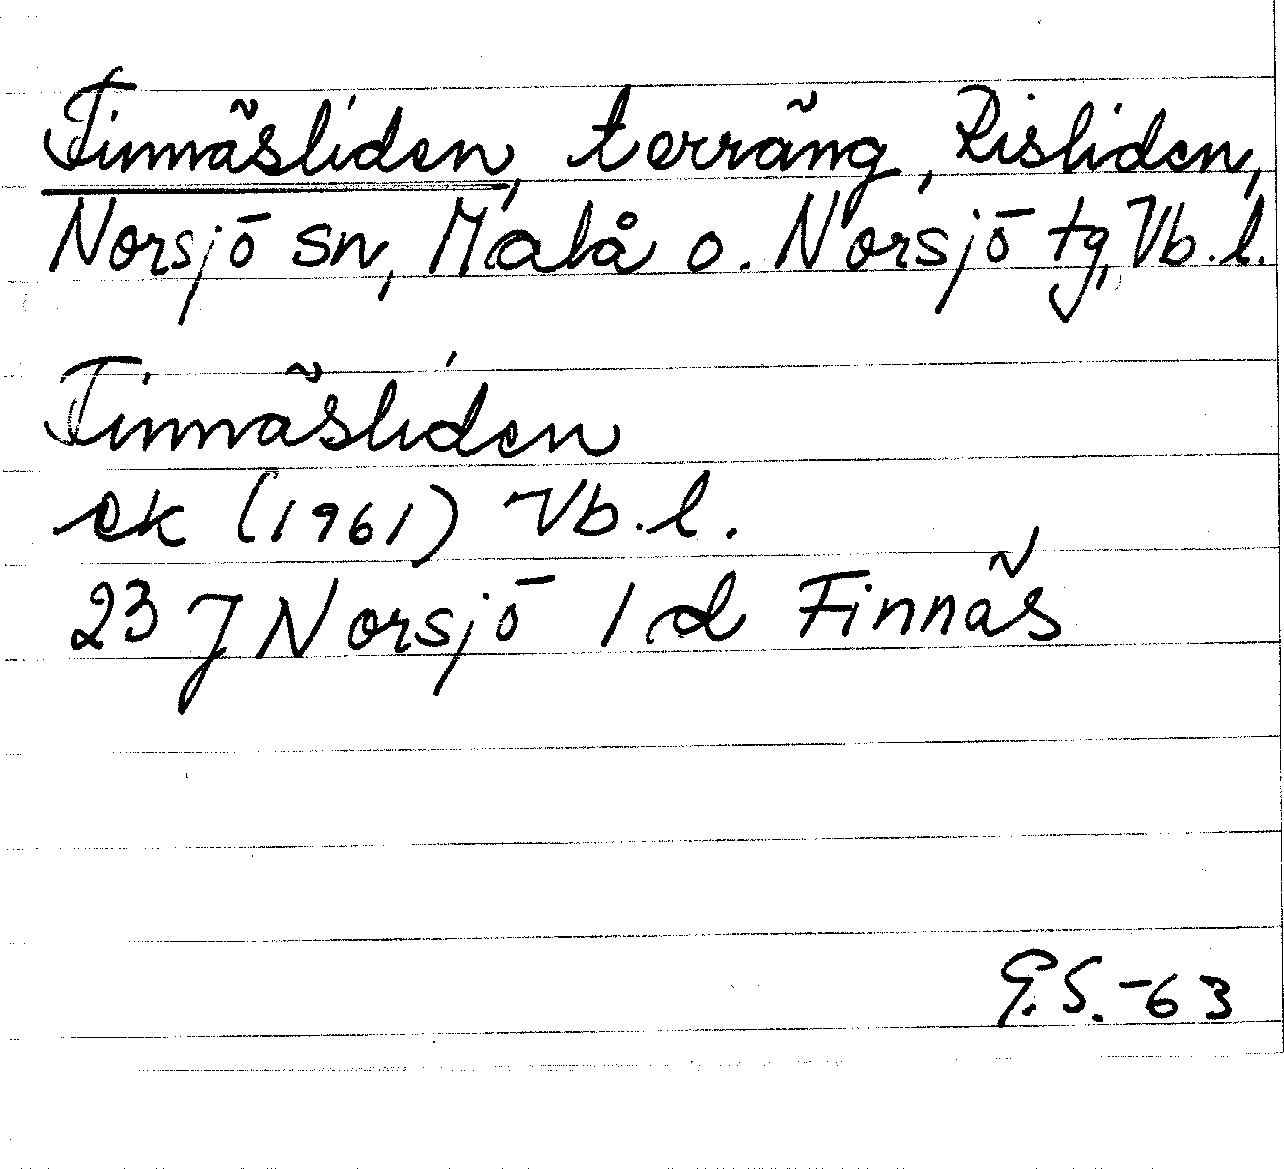 Finnäsliden, terräng, Risliden,
Norsjö sn, Malå o. Norsjö tg, Vb.l.
Finnäsliden
ek (1961) Vb.l.
23 J Norsjö 1 d Finnäs
G.S.-63